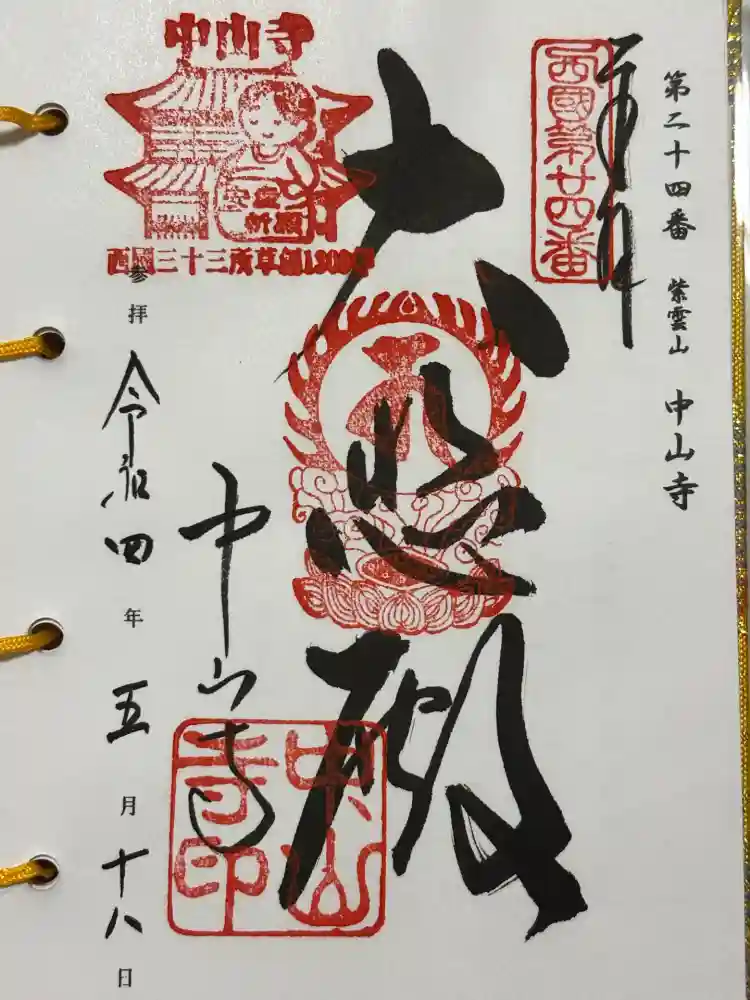 第二十四番 紫雲山 中山寺
奉拝
西國第廿四番
大悲殿
中山寺
中山寺印
中山寺
安産
祈願
西國三十三所草創1300年
参拝 令和四年 五月十八日